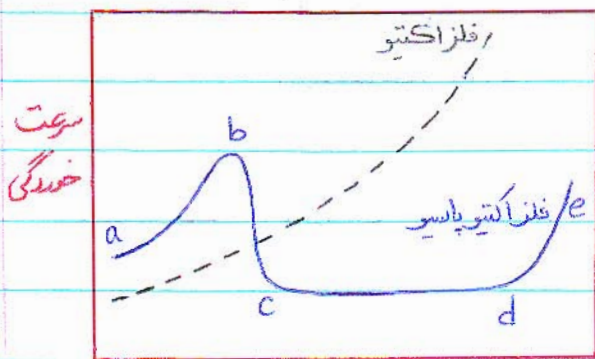 فلز اکتیو
سرعت
خوردگی
b
a
فلز اکتیو پاسیو
e
c
d